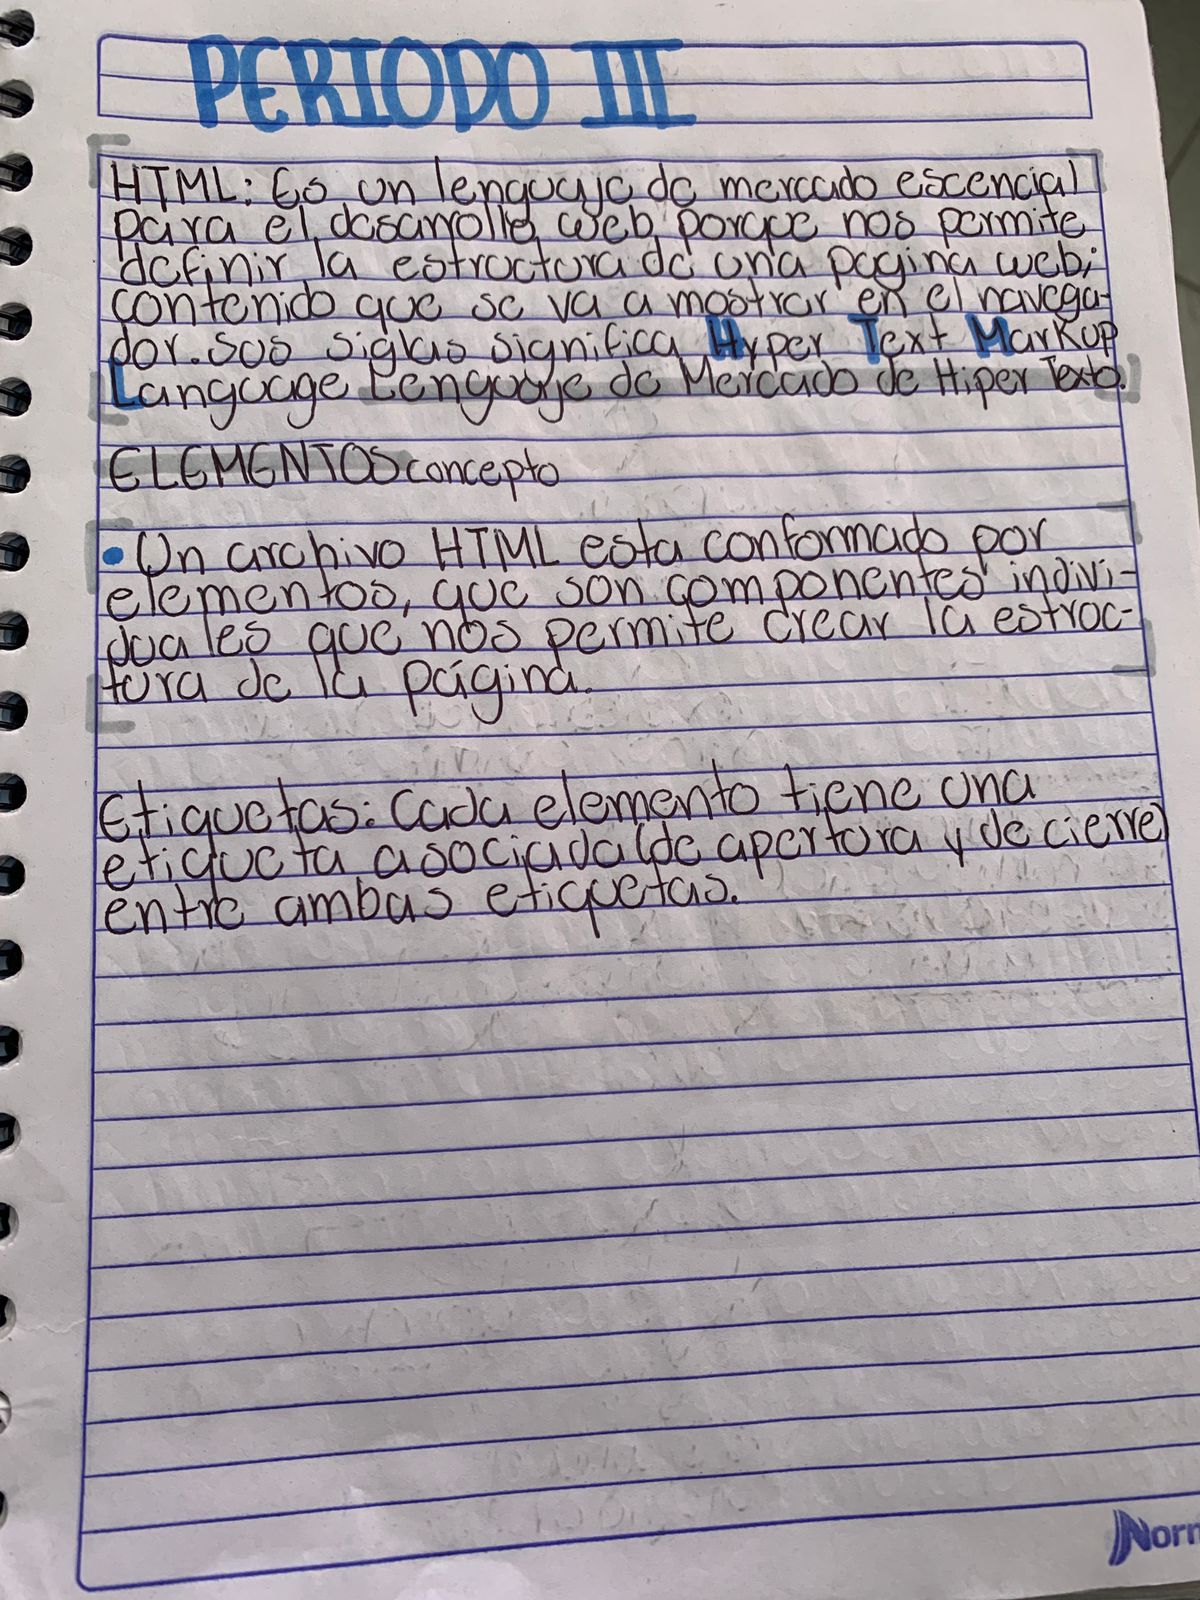 PERIODO III
HTML: Es un lenguaje de mercado escencial
para el desarrollo web porque nos permite
definir la estructura de una pagina web;
contenido que se va a mostrar en el navega-
dor. sus siglas significa Hyper Text Markup
Language Lenguaje de Mercado de Hiper Texto.
ELEMENTOS concepto
• Un archivo HTML esta conformado por
elementos, que son componentes indivi-
duales que nos permite crear la estruc-
tura de la página.
Etiquetas: Cada elemento tiene una
etiqueta asociada (de apertura y de cierre)
entre ambas etiquetas.
Norm